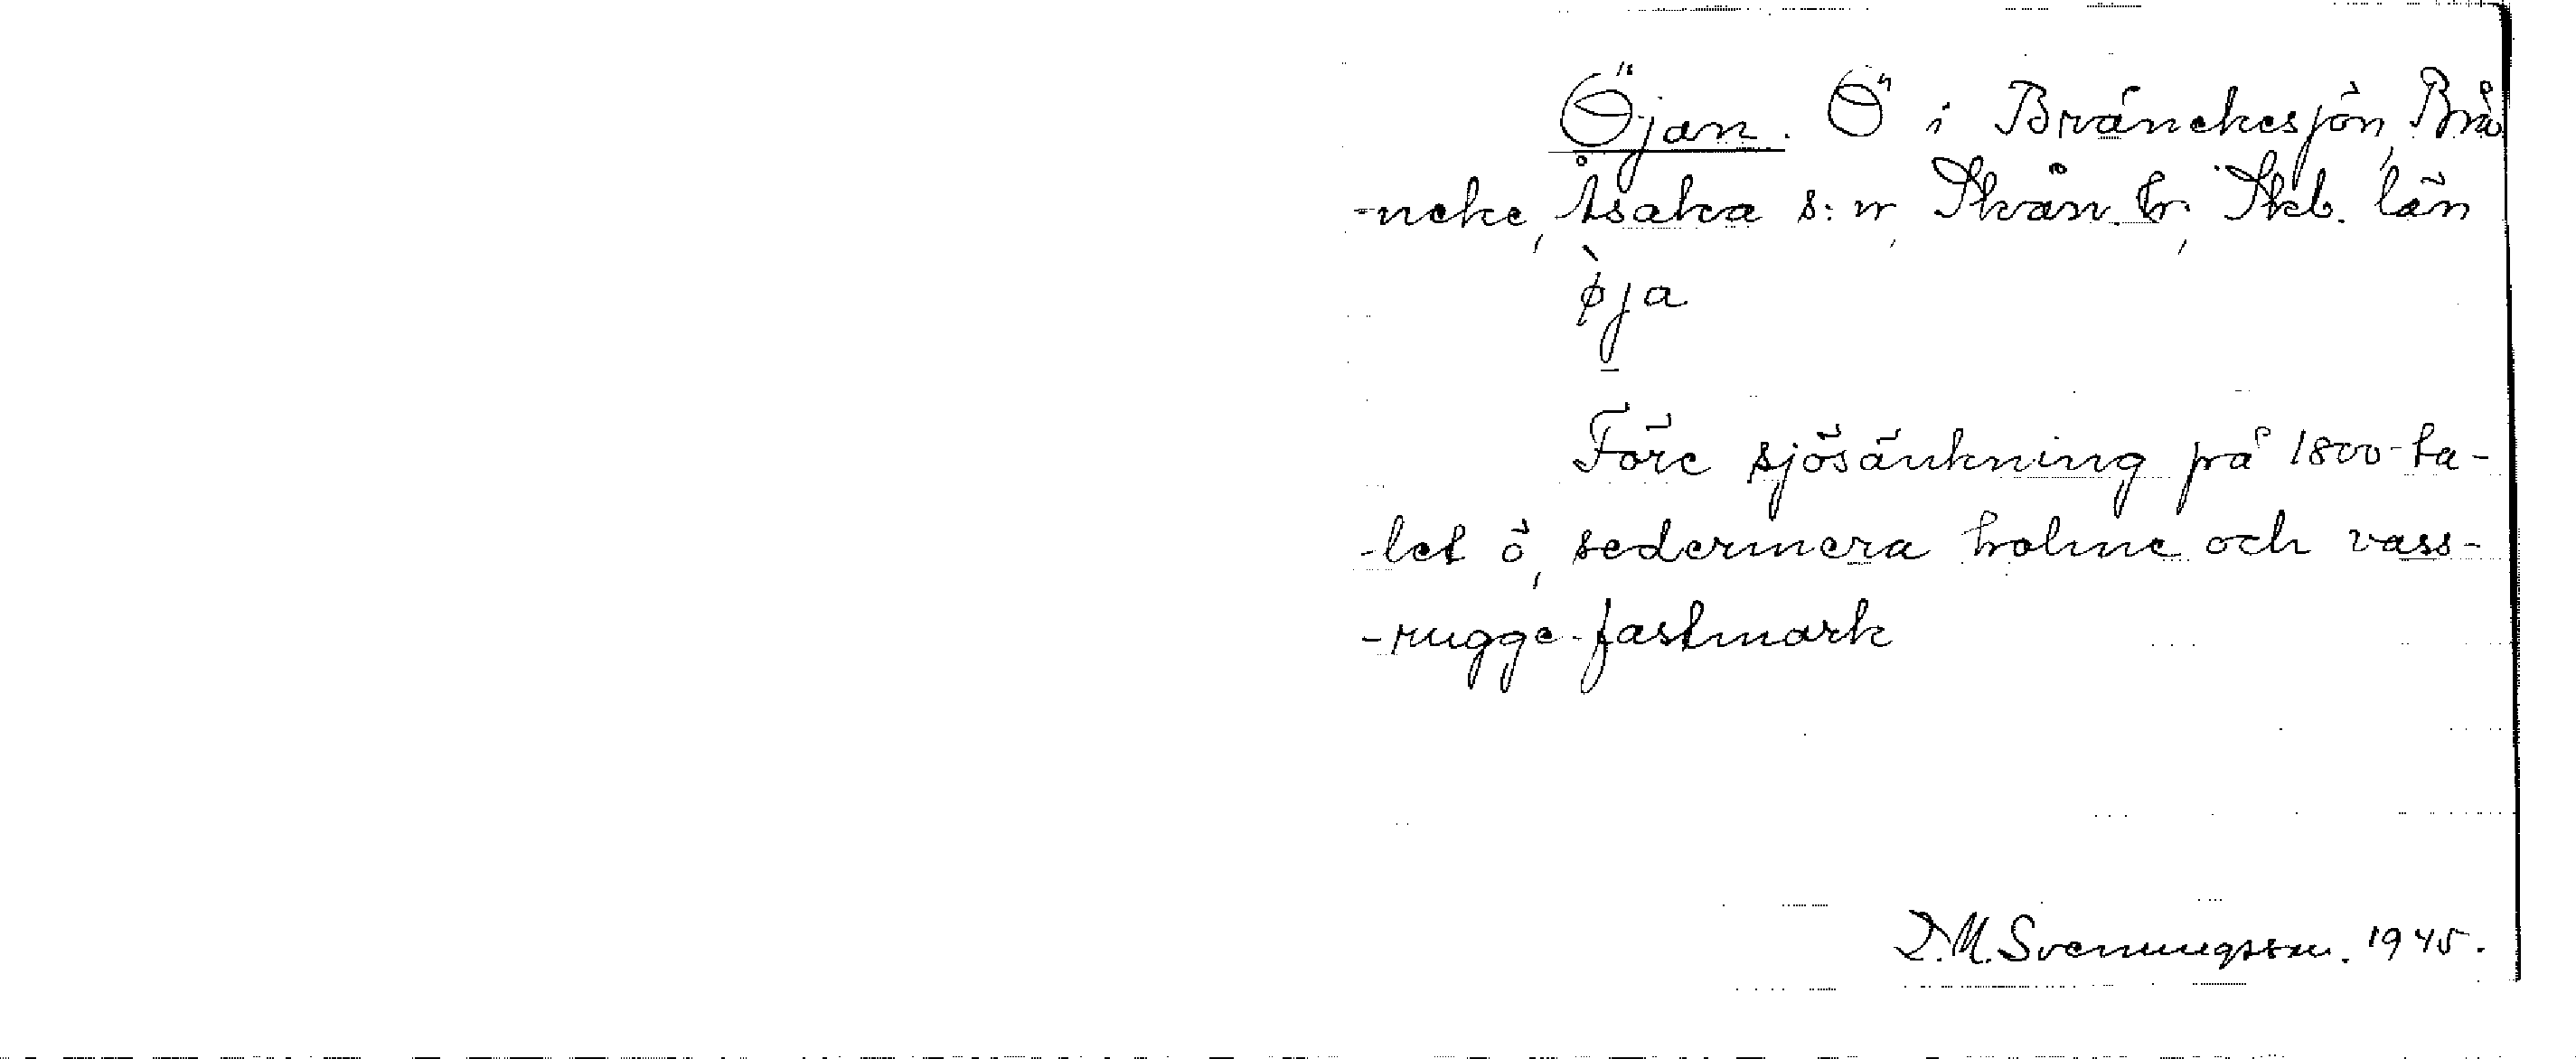 Öjan. Ö i Bränekesjön, Brä
-neke, Åsaka s:n, Skån. h., Skb. län
ø̀ja
Före sjösänkning på 1800-ta-
-let ö, sedermera holme och vass-
-rugge-fastmark
D.M. Svenningsson. 1945.